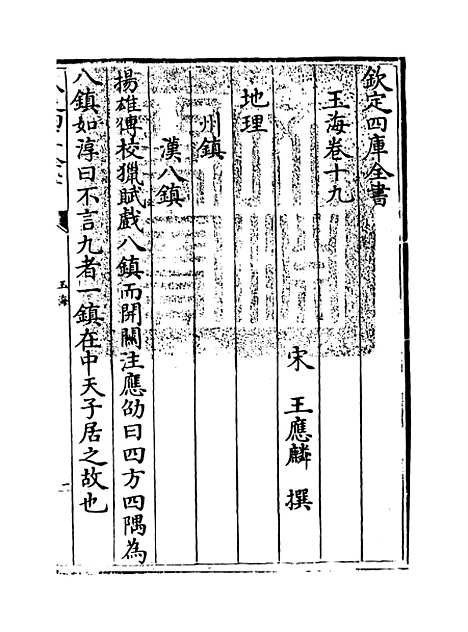 欽定四庫全書
玉海卷十九
宋 王應麟 撰
地理
州鎮
漢八鎮
揚雄傳校獵賦戲八鎮而開關注應劭曰四方四隅為
八鎮如淳曰不言九者一鎮在中天子居之故也
玉海